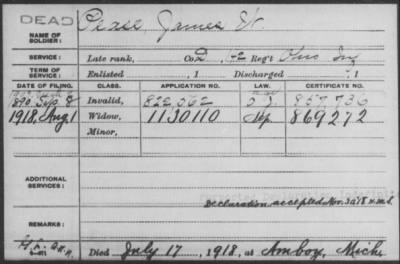 DEAD
NAME OF SOLDIER: Pease, James W.
SERVICE: Late rank, Co. D, Reg't Ohio Inf
TERM OF SERVICE: Enlisted , 1 Discharged , 1
DATE OF FILING. CLASS. APPLICATION NO. LAW. CERTIFICATE NO.
1890, Sep 8 Invalid, 822,562 857,736
1918, Aug 1 Widow, 1130110 Sep 869272
Minor,
ADDITIONAL SERVICES:
Declaration accepted Nov. 30 18
REMARKS:
Died July 17, 1918, at Amboy, Mich.